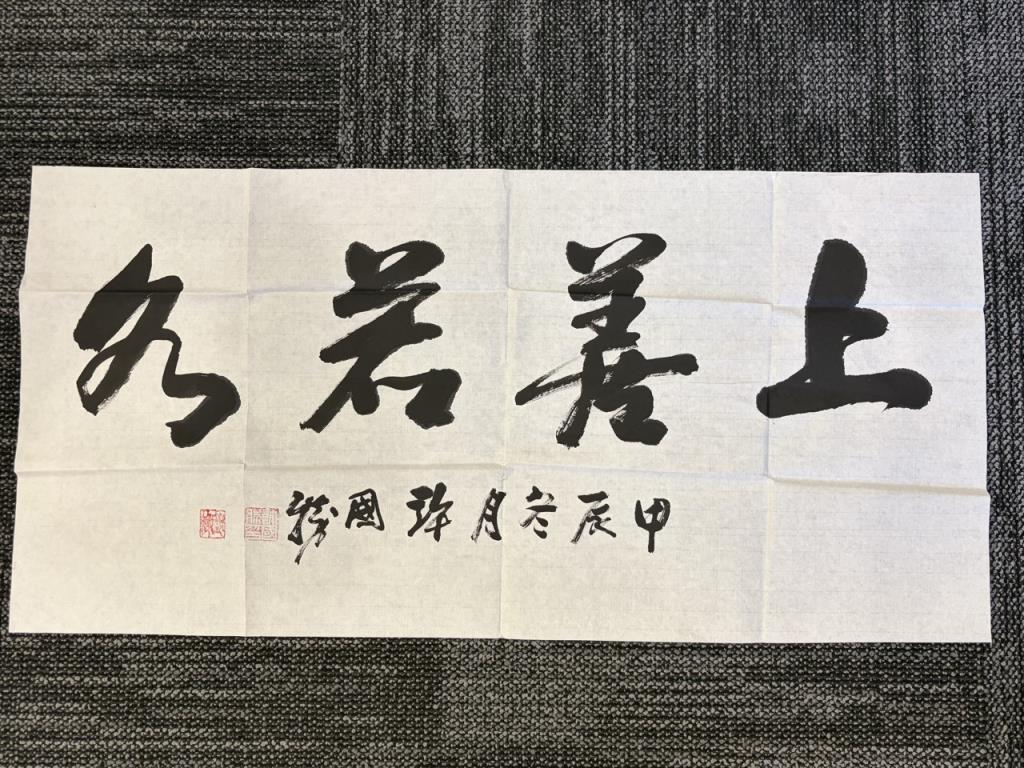 上善若水
甲辰冬月 許國